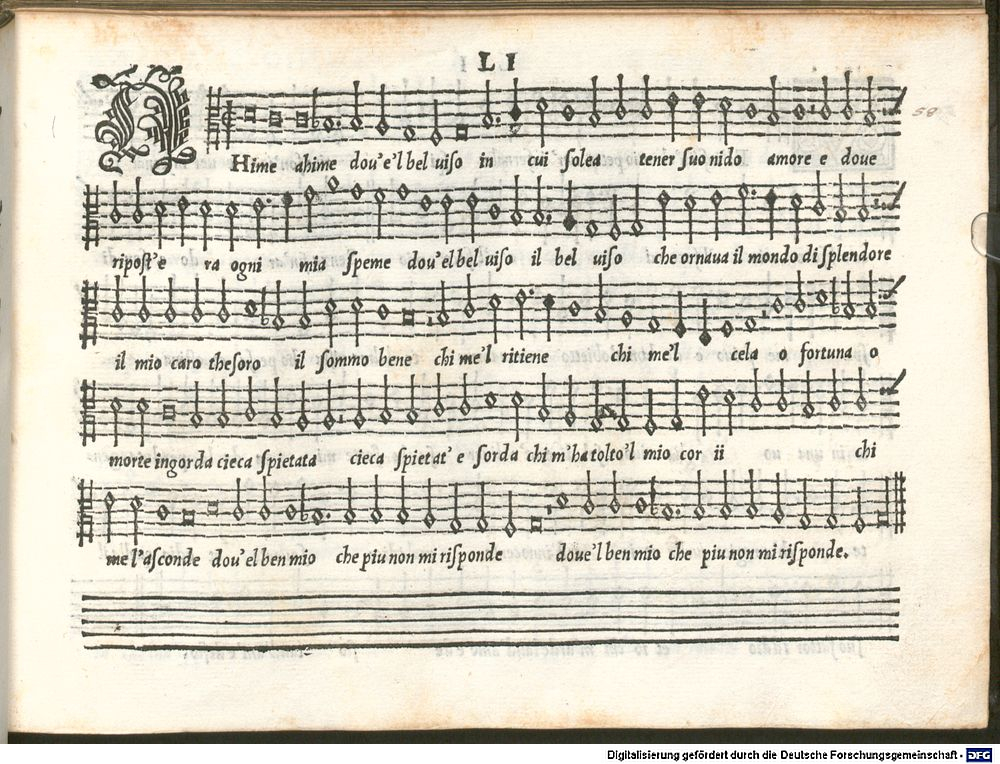 LI
58
AHime ahime dou'e'l bel uiso in cui solea tener suo nido amore e doue
ripost'e ra ogni mia speme dou'el bel uiso il bel uiso che ornaua il mondo di splendore
il mio caro thesoro il sommo bene chi me'l ritiene chi me'l cela o fortuna o
morte ingorda cieca spietata cieca spietat' e sorda chi m'ha tolto'l mio cor ii chi
me l'asconde dou'el ben mio che piu non mi risponde doue'l ben mio che piu non mi risponde.
Digitalisierung gefördert durch die Deutsche Forschungsgemeinschaft - DFG